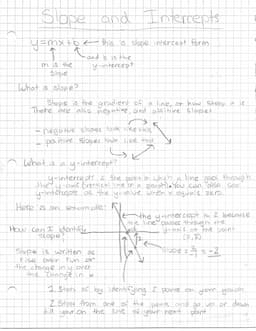 Slope and Intercepts
y=mx+b ← this is slope intercept form
m is the slope
and b is the y-intercept
What is slope?
Slope is the gradient of a line, or how steep it is
There are also negative and positive slopes
- negative slopes look like this
- positive slopes look like this
What is a y-intercept?
y-intercept is the point which a line goes through
the y-axis (vertical line on a graph). You can also see
y-intercept as the y-value when x equals zero.
Here is an example:
the y-intercept is 2 because
the line passes through the
y-axis at the point
How can I identify
slope?
Slope is written as
rise over run or
the change in y over
the change in x
slope =
1. Start of by identifying 2 points on your graph
2. Start from one of the points and go up or down
till your on the line of your next point